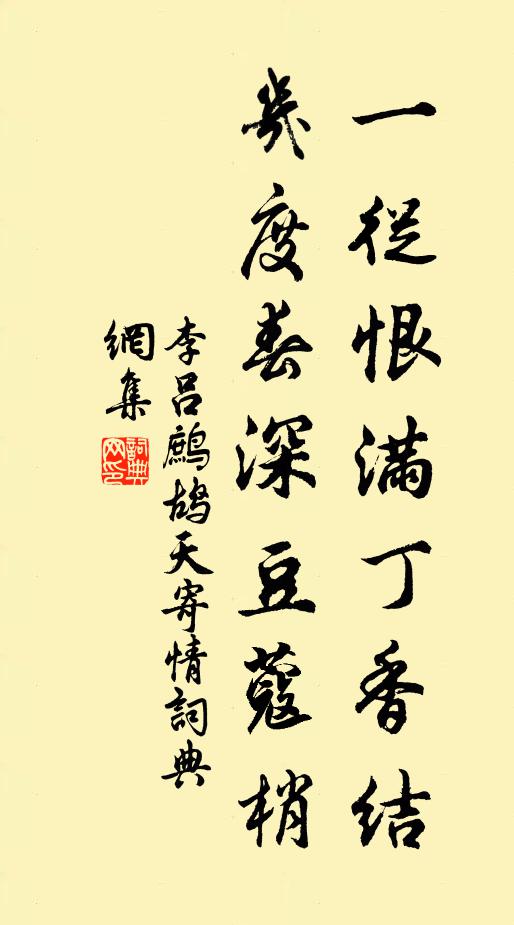 一從恨滿丁香結
幾度春深豆蔻梢
李呂鷓鴣天寄情詞典
網集
詞典
网印